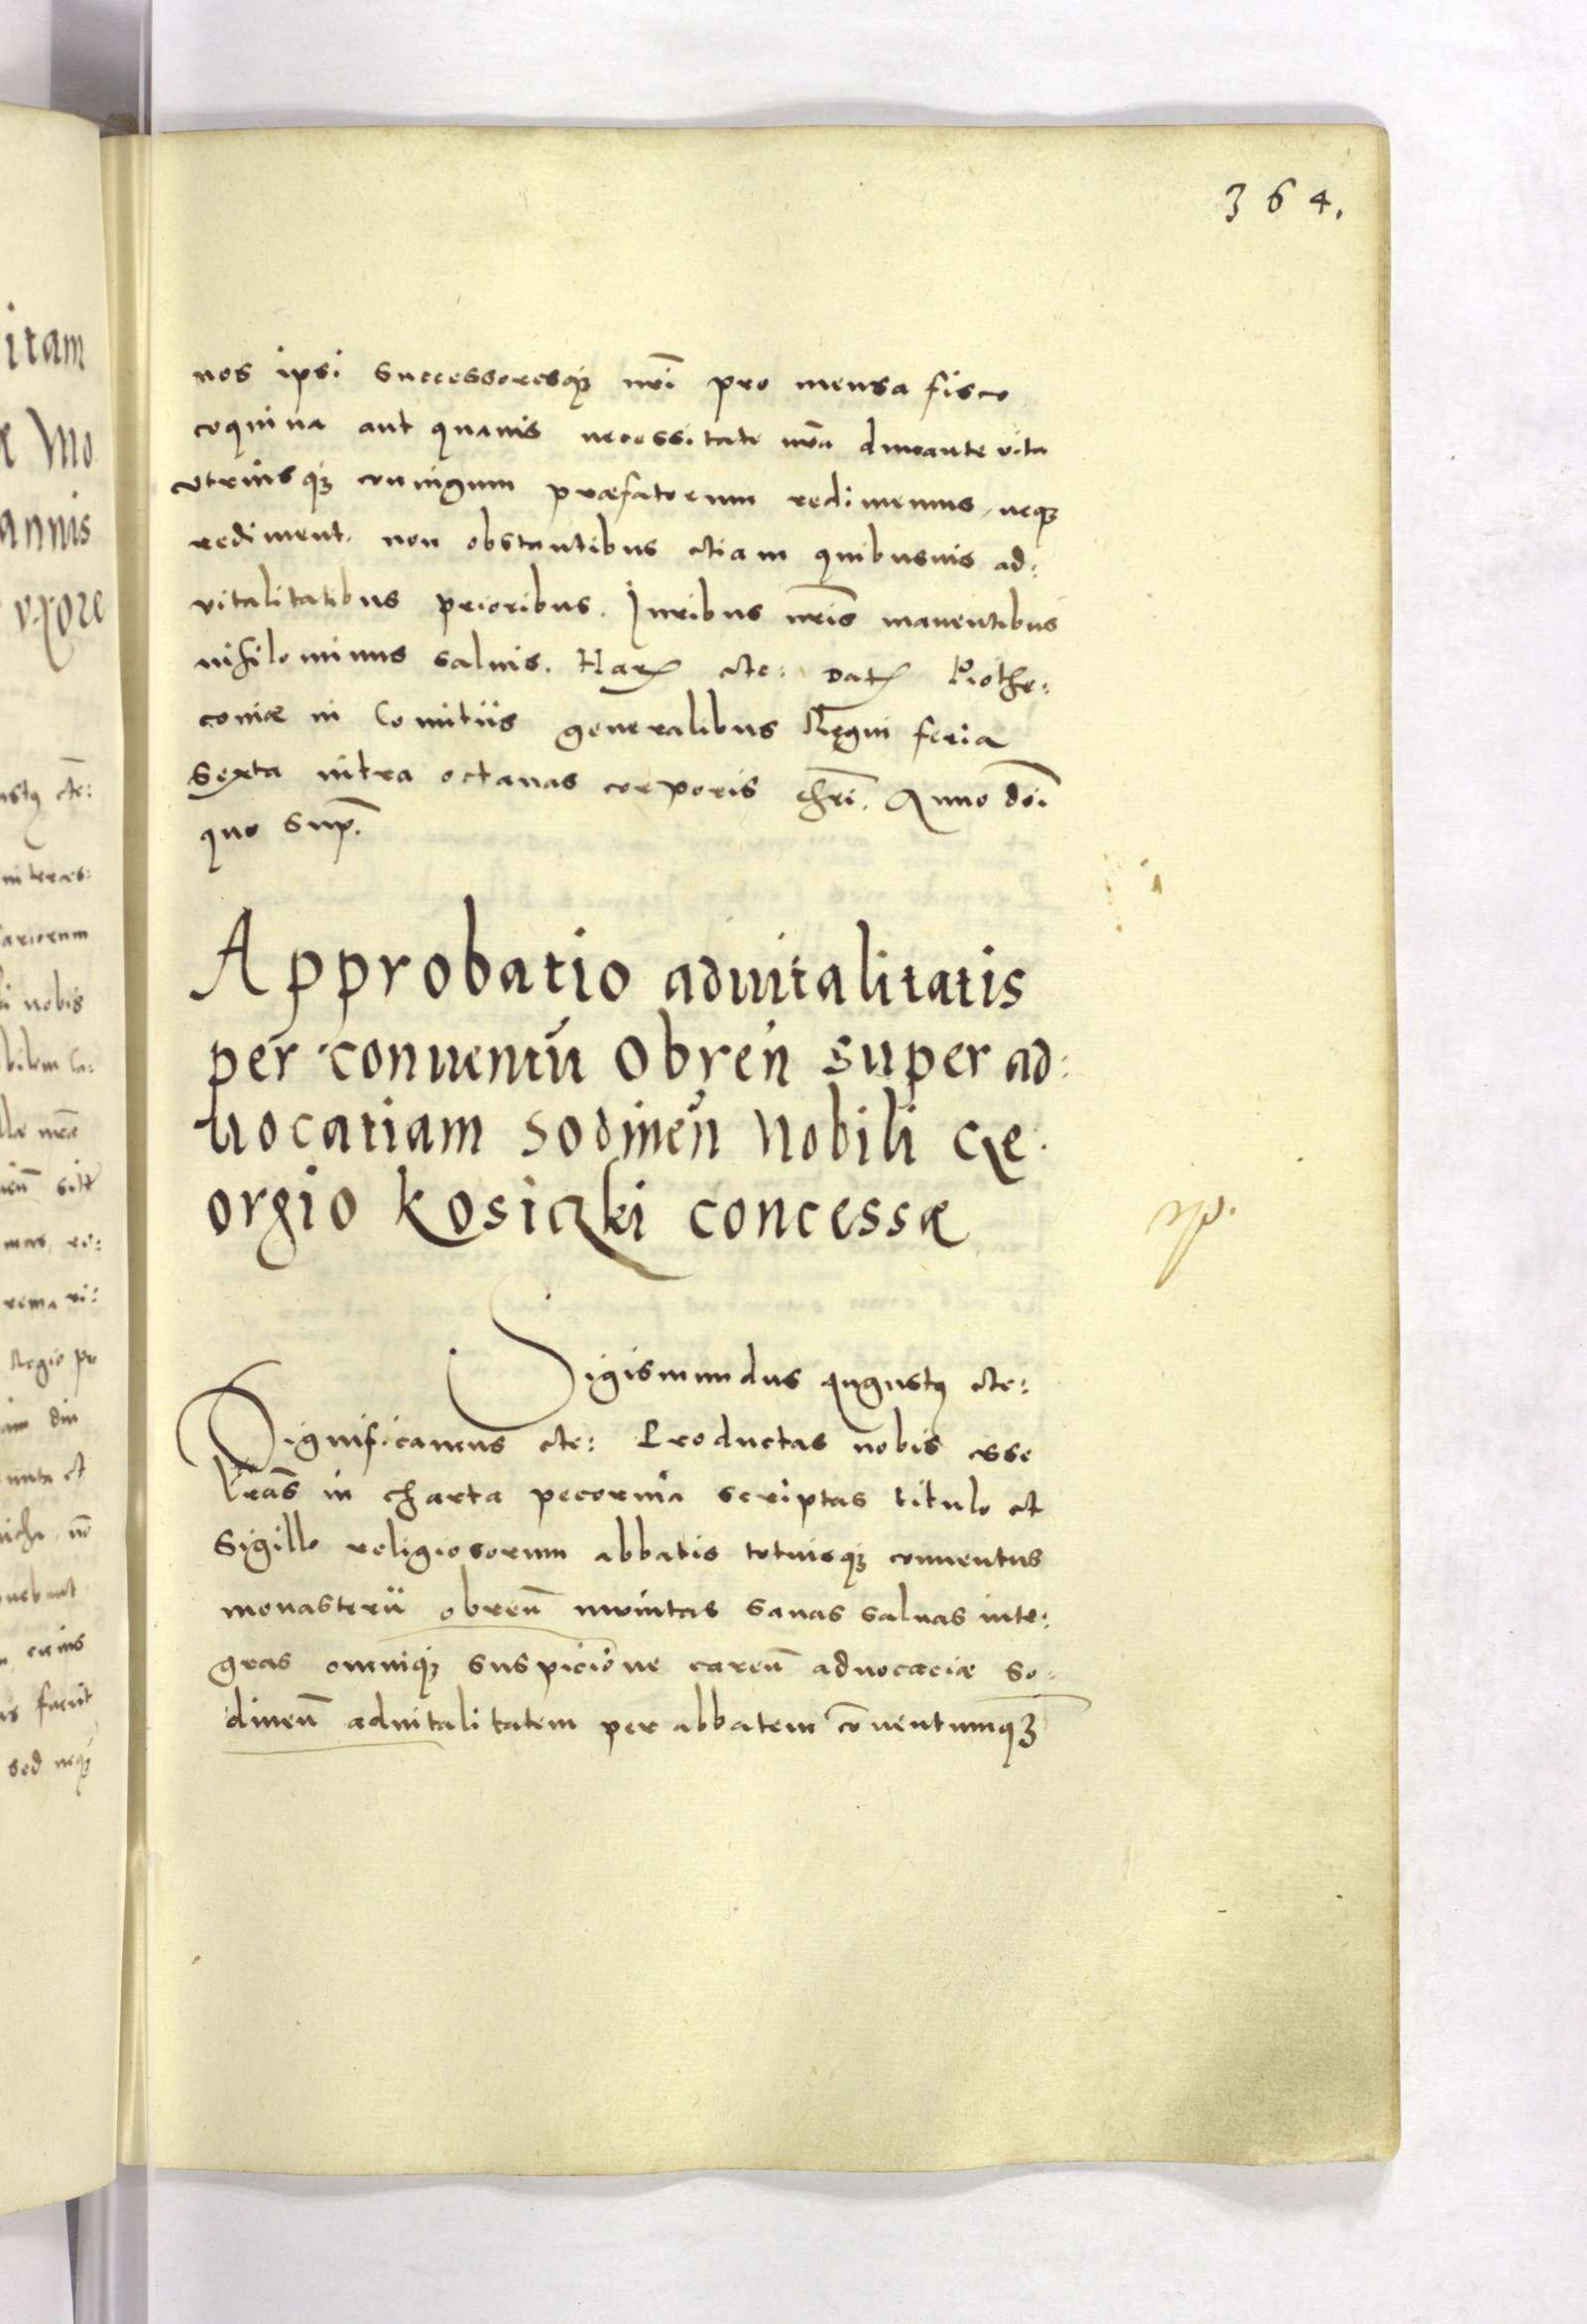 364.
nos ipsi Successoresq3 nr̃i pro mensa fisco
coquina aut quauis necessitate nr̃a durante vita
vtriusq3 coniugum præfatorum redimemus, neq3
rediment. non obstantibus etiam quibusuis ad:
vitalitatibus prioribus. Iuribus nr̃is manentibus
nihilominus saluis. Har etc: Dat Piothr:
coniæ in Comitiis generalibus Regni feria
Sexta intra octauas corporis chr̃i. Anno dni
quo sup.
Approbatio aduitalitatis
per conuentū Obren̄ super ad:
uocatiam Sodinen̄ Nobili Ge:
orgio Kosiczki concessæ
Sigismundus Augustq etc:
Significamus etc: Productas nobis esse
lr̃as in charta pecorina scriptas titulo et
Sigillo religiosorum abbatis totiusq3 conuentus
monasterii obren̄ munitas sanas saluas inte:
gras omniq3 suspicione caren̄ aduocaciæ So:
dinen̄ aduitalitatem per abbatem cōuentumq3